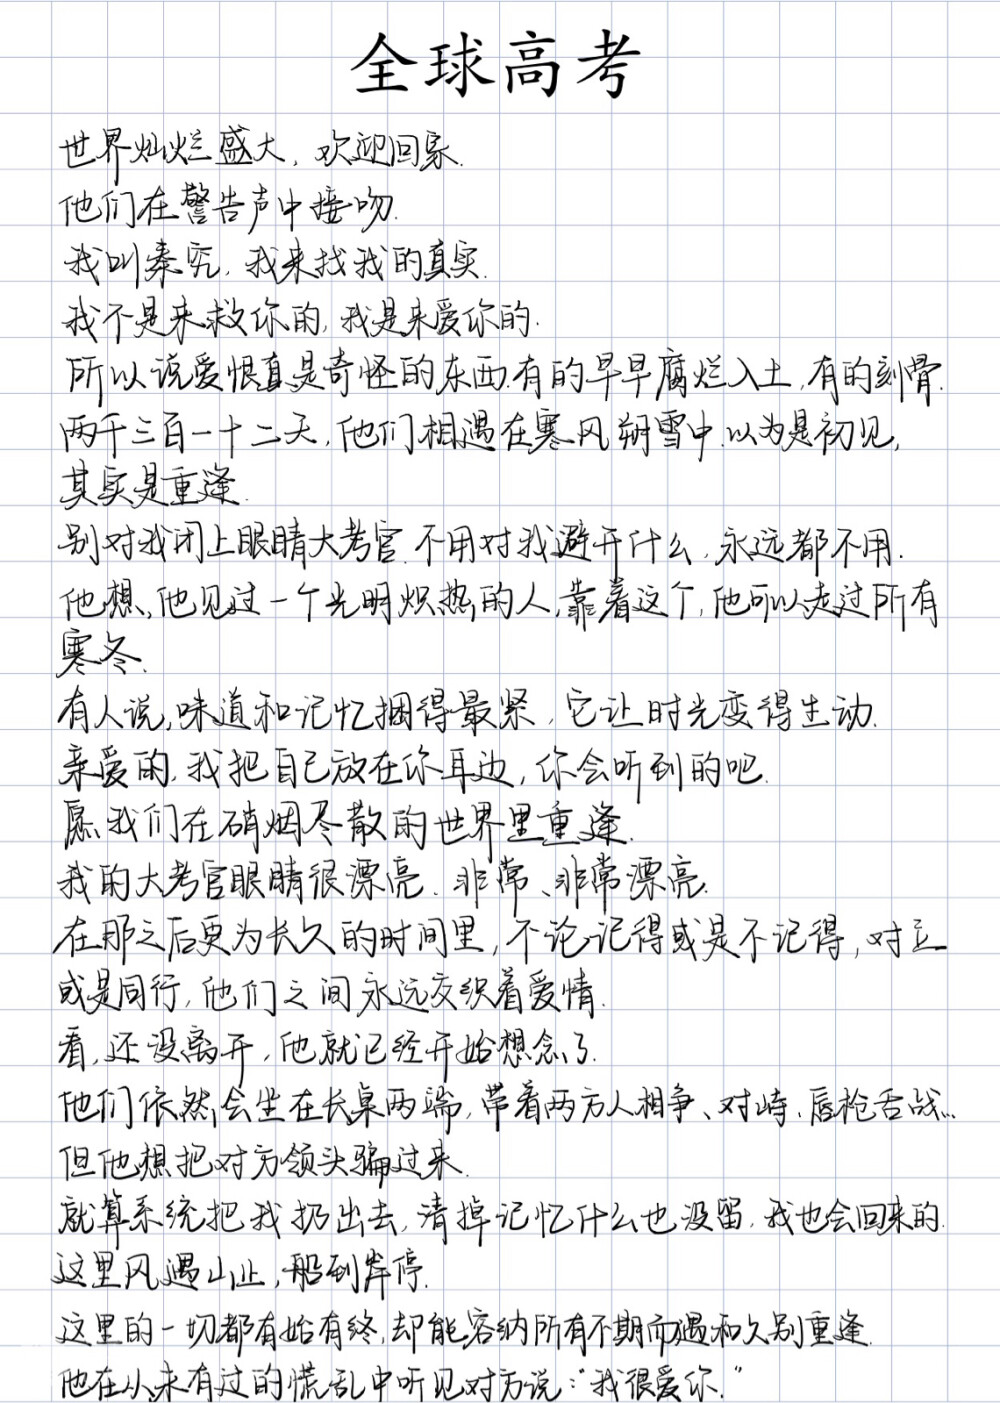 全球高考
世界灿烂盛大，欢迎回家.
他们在警告声中接吻.
我叫秦究，我来找我的真实.
我不是来救你的，我是来爱你的.
所以说爱恨真是奇怪的东西.有的早早腐烂入土，有的刻骨.
两千三百一十二天，他们相遇在寒风朔雪中.以为是初见，
其实是重逢.
别对我闭上眼睛大考官.不用对我避开什么，永远都不用.
他想，他见过一个光明炽热的人，靠着这个，他可以走过所有
寒冬.
有人说，味道和记忆捆得最紧，它让时光变得生动.
亲爱的，我把自己放在你耳边，你会听到的吧.
愿我们在硝烟尽散的世界里重逢.
我的大考官眼睛很漂亮、非常、非常漂亮.
在那之后更为长久的时间里，不论记得或是不记得，对立
或是同行，他们之间永远交织着爱情.
看，还没离开，他就已经开始想念了.
他们依然会坐在长桌两端，带着两方人相争、对峙、唇枪舌战...
但他想把对方领头骗过来.
就算系统把我扔出去，清掉记忆什么也没留，我也会回来的.
这里风遇山止，船到岸停.
这里的一切都有始有终，却能容纳所有不期而遇和久别重逢.
他在从未有过的慌乱中听见对方说："我很爱你."